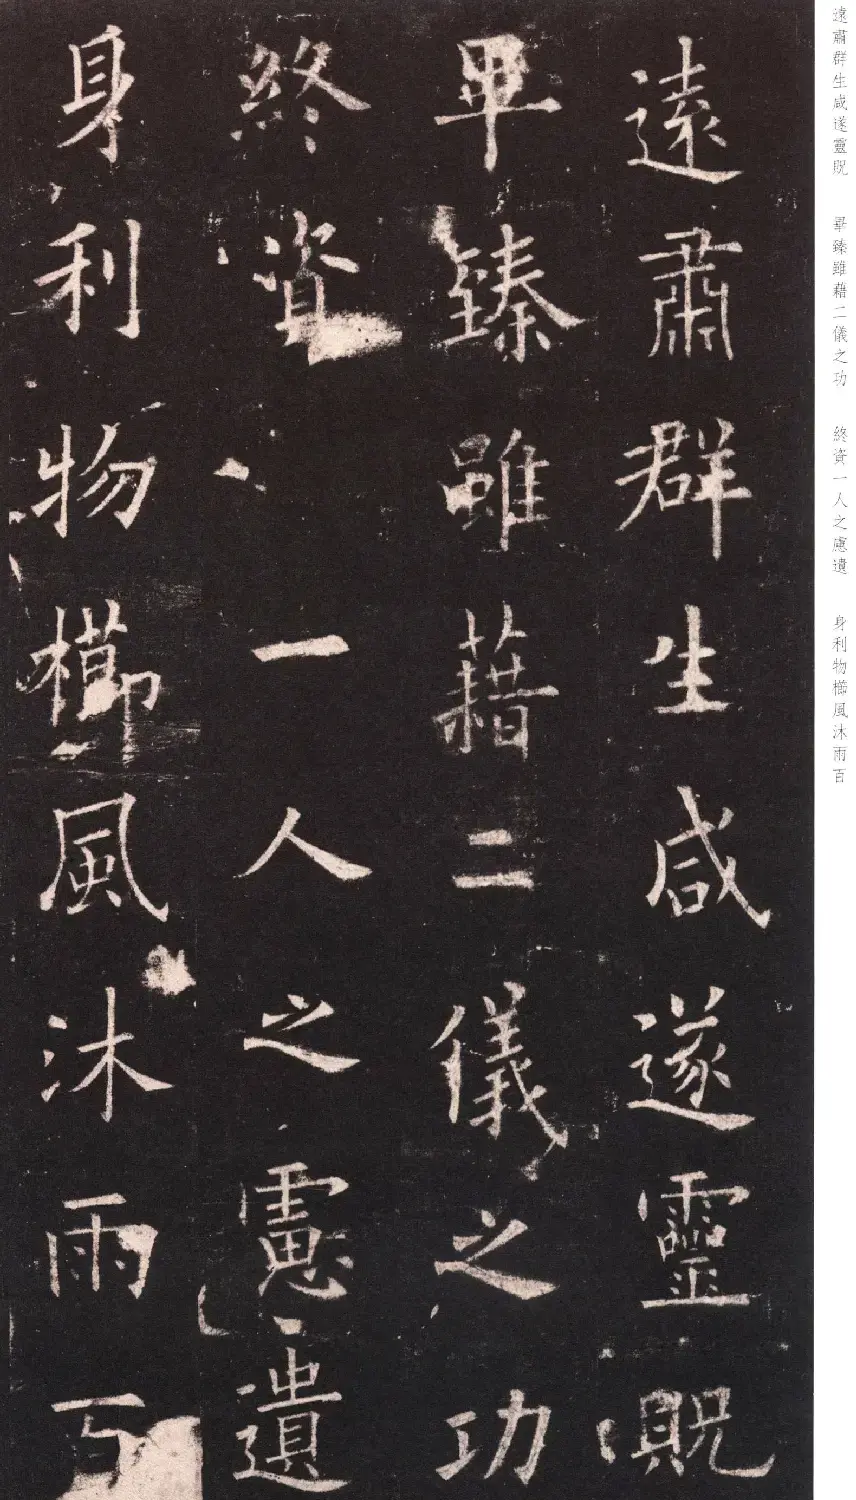 遠肅群生咸遂靈貺
畢臻雖藉二儀之功
終資一人之慮遺
身利物櫛風沐雨百
遠肅群生咸遂靈貺 畢臻雖藉二儀之功 終資一人之慮遺 身利物櫛風沐雨百